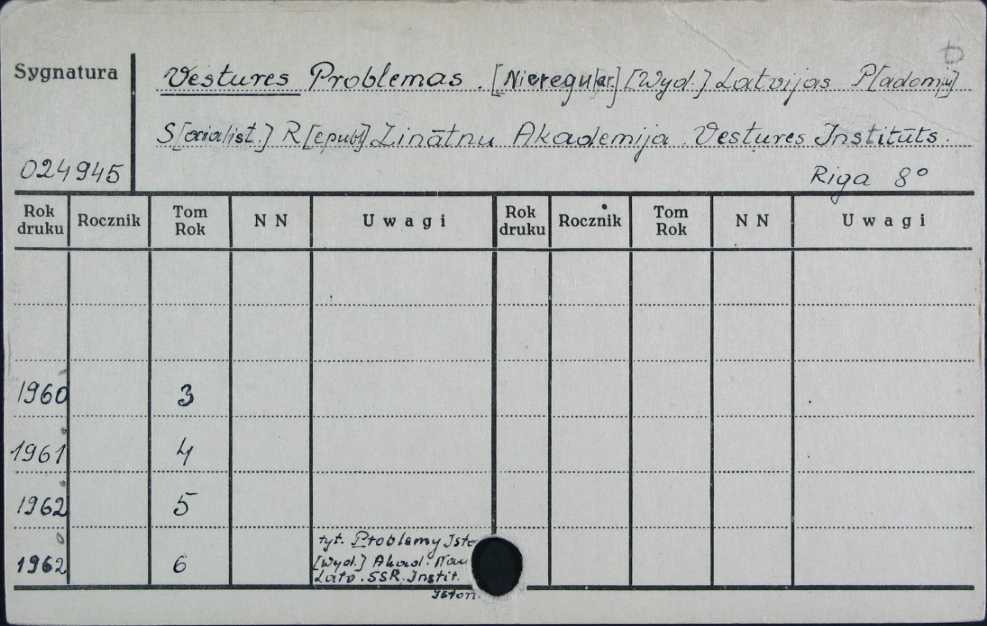 Sygnatura
Vestures Problemas. [Nieregular.] [Wyd.] Latvijas P[adomju]
S[ocialist.] R[epubl] Zinātnu Akademija. Vestures Institūts.
024945
Riga 8°
Rok druku Rocznik Tom Rok N N Uwagi Rok druku Rocznik Tom Rok N N Uwagi
1960 3
1961 4
1962 5
tyt. Problemy Isto
1962 6 [Wyd.] Akad. Nau
Latv. SSR. Instit.
Istorii.